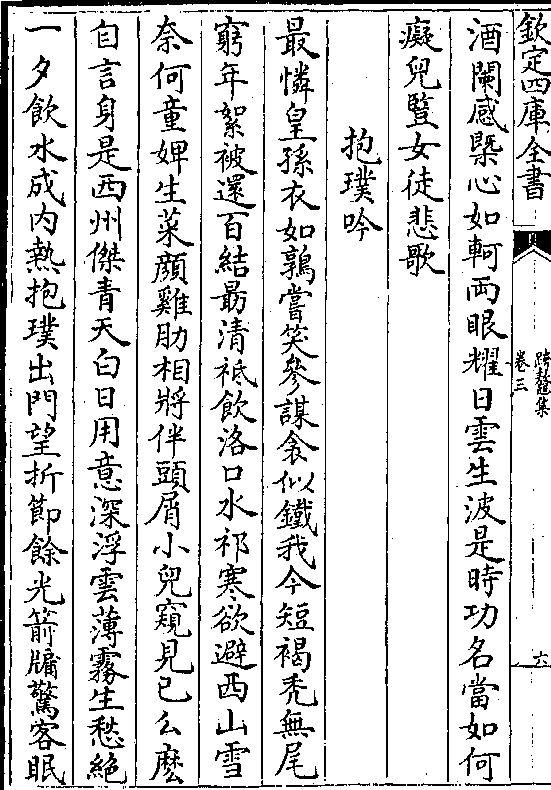 欽定四庫全書
跨鼇集
卷三
六
酒闌感槩心如軻兩眼耀日雲生波是時功名當如何
癡兒騃女徒悲歌
抱璞吟
最憐皇孫衣如鶉嘗笑參謀衾似鐵我今短褐禿無尾
窮年絮被還百結最清祗飲洛口水祁寒欲避西山雪
奈何童婢生菜顔雞肋相將伴頭屑小兒窺見已么麽
自言身是西州傑青天白日用意深浮雲薄霧生愁絶
一夕飲水成内熱抱璞出門望折節餘光箭牖驚客眠